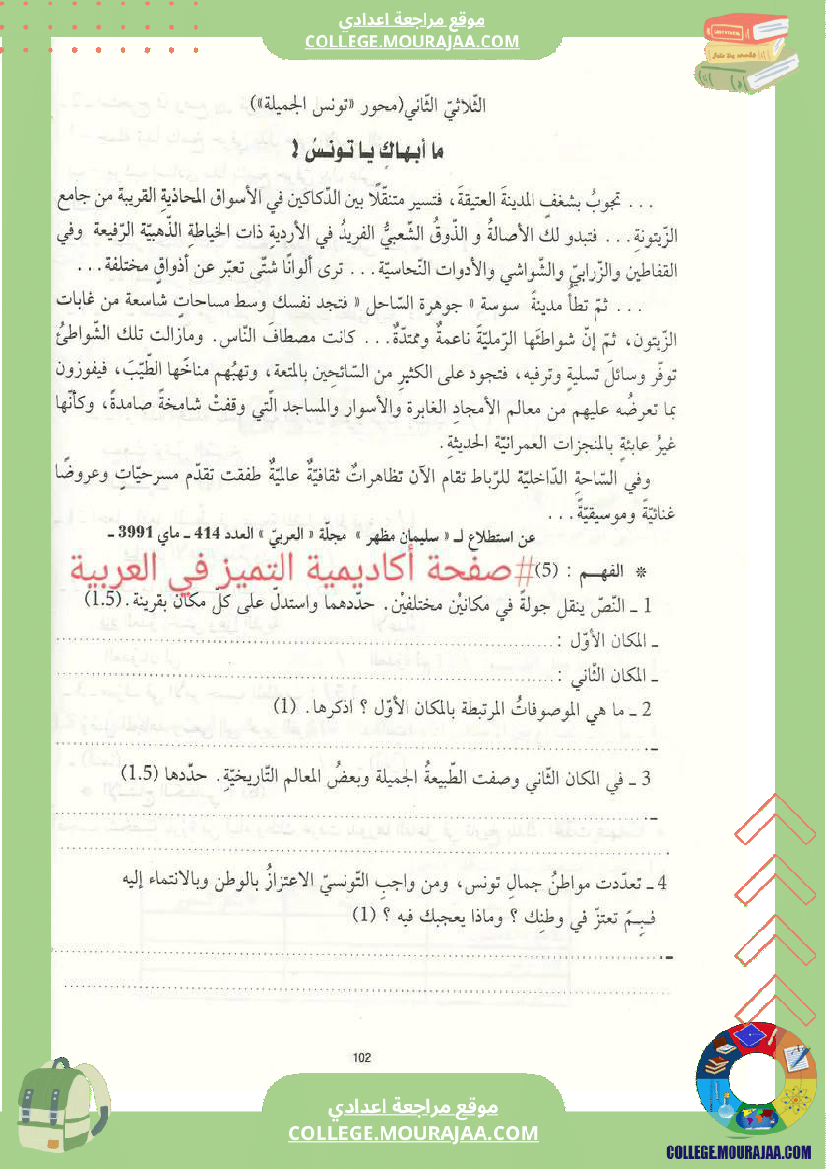 موقع مراجعة اعدادي
COLLEGE.MOURAJAA.COM
الثّلاثيّ الثّاني(محور «تونس الجميلة»)
ما أبهاك يا تونسُ !
... تجوبُ بشغفٍ المدينةَ العتيقةَ، فتسير متنقّلًا بين الدّكاكين في الأسواق المحاذيةِ القريبة من جامع
الزّيتونةِ... فتبدو لك الأصالةُ و الذّوقُ الشّعبيُّ الفريدُ في الأرديةِ ذات الخياطةِ الذّهبيّة الرّفيعة وفي
القفاطين والزّرابيّ والشّواشي والأدوات النّحاسيّة... ترى ألوانًا شتّى تعبّر عن أذواقٍ مختلفة...
... ثمّ تطأُ مدينةُ سوسة « جوهرة السّاحل « فتجد نفسك وسط مساحاتٍ شاسعة من غابات
الزّيتون، ثمّ إنّ شواطئَها الرّمليّةَ ناعمةٌ وممتدّةٌ... كانت مصطافَ النّاس. ومازالت تلك الشّواطئُ
توفّر وسائلَ تسليةٍ وترفيه، فتجود على الكثيرِ من السّائحِين بالمتعة، وتهبُهم مناخَها الطّيّبَ، فيفوزون
بما تعرضُه عليهم من معالم الأمجادِ الغابرة والأسوار والمساجد الّتي وقفتْ شامخةً صامدةً، وكأنّها
غيرُ عابئةٍ بالمنجزات العمرانيّة الحديثةِ.
وفي السّاحةِ الدّاخليّة للرّباط تقام الآن تظاهراتٌ ثقافيّةٌ عالميّةٌ طفقت تقدّم مسرحيّاتٍ وعروضًا
غنائيّةً وموسيقيّةً...
عن استطلاع لـ « سليمان مظهر » مجلّة « العربيّ » العدد 414 ــ ماي 3991 ــ
* الفهـم : (5) #صفحة أكاديمية التميز في العربية
1 ــ النّصّ ينقل جولةً في مكانيْن مختلفيْن. حدّدهما واستدلّ على كلّ مكان بقرينة. (1.5)
ــ المكان الأوّل :
ــ المكان الثّاني :
2 ــ ما هي الموصوفاتُ المرتبطة بالمكان الأوّل ؟ اذكرها. (1)
3 ــ في المكان الثّاني وصفت الطّبيعةُ الجميلة وبعضُ المعالم التّاريخيّة. حدّدها (1.5)
4 ــ تعدّدت مواطنُ جمالِ تونس، ومن واجبِ التّونسيّ الاعتزازُ بالوطن وبالانتماء إليه
فـبِـمَ تعتزّ في وطنِك ؟ وماذا يعجبك فيه ؟ (1)
102
موقع مراجعة اعدادي
COLLEGE.MOURAJAA.COM
COLLEGE.MOURAJAA.COM